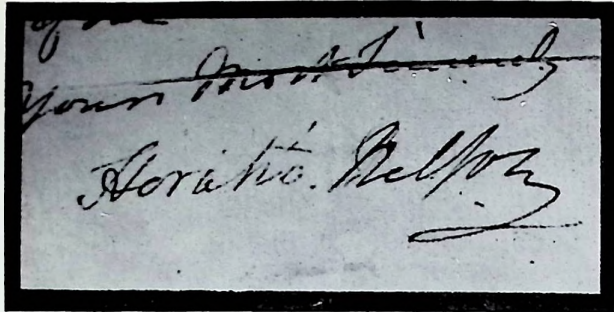 yours Most Sincerely
Horatio. Nelson